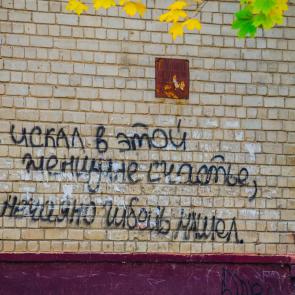 искал в этой
женщине счастье,
нечаяно шведь нашел.